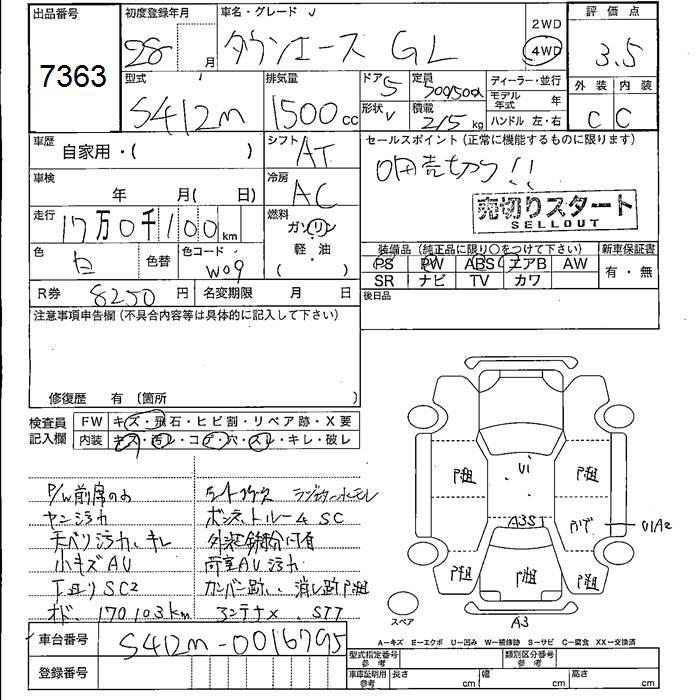 出品番号
7363
初度登録年月
28 月
車名・グレード
タウンエース GL
2WD
4WD
評価点
3.5
外装 内装
C C
型式
S412M
排気量
1500cc
ドア 5
形状 V
定員
積載 215 kg
ディーラー・並行
モデル年式 年
ハンドル 左・右
車歴
自家用・( )
シフト
AT
セールスポイント (正常に機能するものに限ります)
売切り!!
売切りスタート
SELLOUT
車検
年 月( 日)
冷房
AC
走行
17万0千100km
燃料
ガソリン
軽・油
( )
色
白
色替
色コード
W09
装備品 (純正品に限り○をつけて下さい)
PS PW ABS エアB AW
SR ナビ TV カワ
新車保証書
有・無
R券 8250円
名変期限 月 日
後日品
注意事項申告欄 (不具合内容等は具体的に記入して下さい)
修復歴 有 〔箇所 〕
検査員記入欄
FW キズ・飛石・ヒビ割・リペア跡・X要
内装 キズ・汚レ・コゲ・穴・スレ・キレ・破レ
P/W前席のみ
ラジエター水モレ
天ベリ汚れ、キレ
ボンネットルーム SC
小キズAU
外装錆部分有
荷室AU 汚れ
下廻りSC2
カンバン跡、消し跡
オド、170103km
コンテナX、STT
U1
A3S1
U1A2
A3
スペア
A-キズ E-エクボ U-凹み W-補修跡 S-サビ C-腐食 XX-交換済
車台番号 S412M-0016795
登録番号
型式指定番号 参考
類別区分番号 参考
車庫証明用 参考
長さ cm 幅 cm 高さ cm